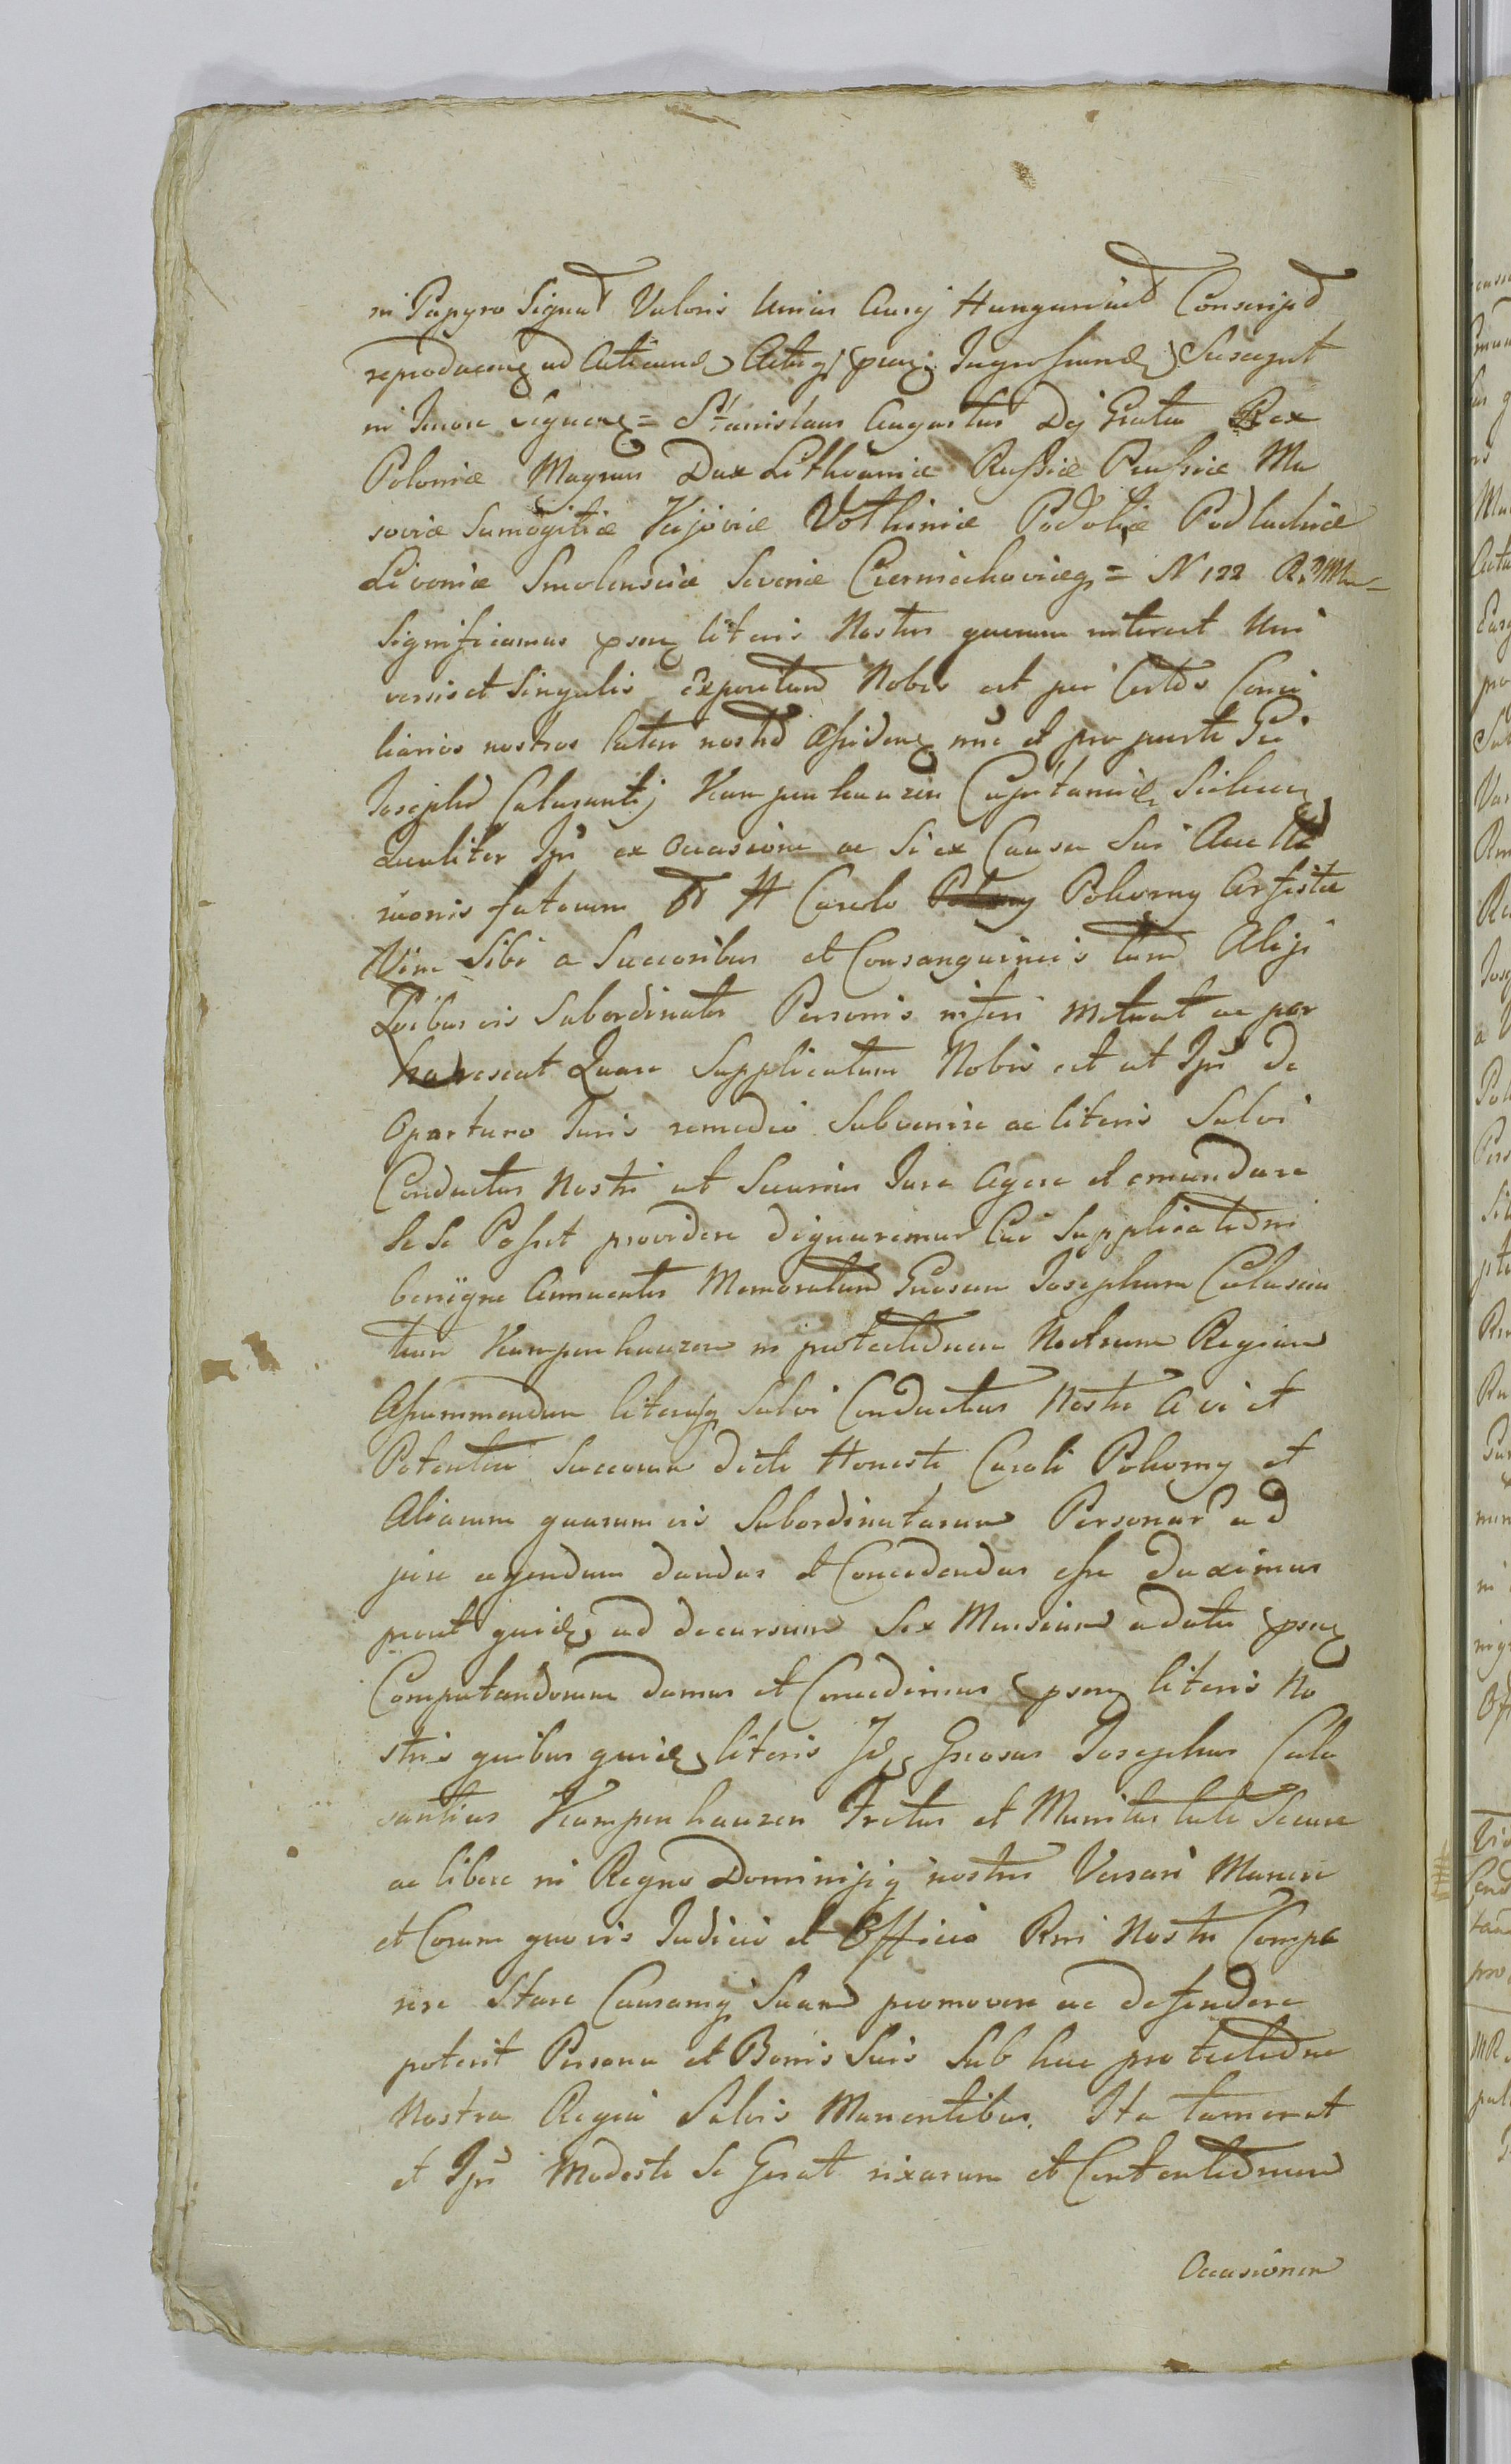 in Papyro Signat Valoris Unius Aurej Hungarical Conscript
reproducens ad Acticand Actisq praes Ingrossand Suscepit
in Tenore Sequens = Stanislaus Augustus Dej Gratia Rex
Poloniæ Magnus Dux Lithvaniæ Russiæ Prussiæ Ma
soviæ Samogitiæ Kijoviæ Volhiniæ Podoliæ Podlachiæ
Livoniæ Smolensciæ Severiæ Czerniechoviæq = N 122
Significamus psen literis Nostris quorum interest Uni
versis et Singulis Expositum Nobis est per Certos Consi
liarios nostros lateri nostro Assiden nunc et pro parte
Josephi Calasantij Kampenhauzen Capitanid
Qualiter Ips ex Occasione ac Si ex Causa Sui
tionis fatorum H Carolo Pohorny Artistæ
Vim Sibi a Succoribus et Consanguineis tum Alijs
Quibusvis Subordinatis Personis inferi metuat ac per
horescat Quare Supplicatum Nobis est ut Ips De
Oportuno Juris remedio Subvenire ac literis Salvi
Conductus Nostri ut Securius Jure Agere et emundare
Se Se Posset providere dignaremur Cui Supplicationi
benigne Annuentes Memoratum Gnosum Josephum Calasan
tium Kampenhauzen in protectionem Nostram Regiam
Assummendum literasq Salvi Conductus Nostri A vi et
Potentia Succorum dicti Honesti Caroli Pohorny et
Aliarum quarumvis Subordinatarum Personar ad
jure agendum dandas et Concedendas esse duximus
prout quidem ad decursum Sex Mensium a data psen
Computandorum damus et Concedimus psen literis No
stris quibus quidem literis Gnosus Josephus Cala
santius Kampenhauzen Fretus et Munitus tute Secure
ac libere in Regno Dominijsq nostris Versari Manere
et Coram quovis Judicio et Officio Rni Nostri Compa
rere Stare Causamq Suam promovere ac defendere
poterit Persona et Bonis Suis Sub hac protectione
Nostra Regia Salvis Manentibus. Ita tamen ut
et Ips Modeste Se Gerat rixarum et Contentionum
Occasionem